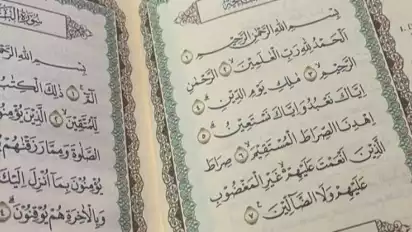 بِسْمِ اللَّهِ الرَّحْمَٰنِ الرَّحِيمِ ١
الْحَمْدُ لِلَّهِ رَبِّ الْعَٰلَمِينَ ٢ الرَّحْمَٰنِ
الرَّحِيمِ ٣ مَٰلِكِ يَوْمِ الدِّينِ ٤
إِيَّاكَ نَعْبُدُ وَإِيَّاكَ نَسْتَعِينُ ٥
اهْدِنَا الصِّرَاطَ الْمُسْتَقِيمَ ٦ صِرَاطَ
الَّذِينَ أَنْعَمْتَ عَلَيْهِمْ غَيْرِ الْمَغْضُوبِ
عَلَيْهِمْ وَلَا الضَّالِّينَ ٧
سورة
بِسْمِ اللَّهِ
الٓمٓ ١ ذَٰلِكَ الْكِتَٰبُ
لِلْمُتَّقِينَ ٢ الَّذِينَ
الصَّلَوٰةَ وَمِمَّا رَزَقْنَٰهُمْ
يُؤْمِنُونَ بِمَا أُنْزِلَ إِلَيْكَ
وَبِالْآخِرَةِ هُمْ يُوقِنُونَ ٤